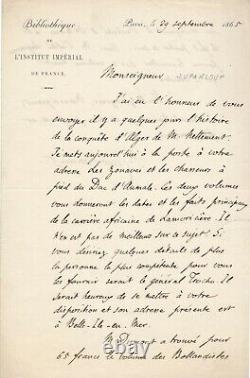 Bibliothèque
DE
L'INSTITUT IMPÉRIAL
DE FRANCE.
Paris, le 29 septembre 1865
Monseigneur, DUPANLOUP
J'ai eu l'honneur de vous
envoyer il y a quelques jours l'histoire
de la conquête d'Alger de M. Nettement.
Je mets aujourd'hui à la poste à votre
adresse Les Zouaves et les chasseurs à
pied du Duc d'Aumale. Les deux volumes
vous donneront les dates et les faits principaux
de la carrière africaine de Lamoricière. Il
n'en est pas de meilleurs sur ce sujet. Si
vous désirez quelques détails de plus
la personne la plus compétente pour vous
les fournir serait le général Trochu. Il
serait heureux de se mettre à votre
disposition et son adresse présente est
à Belle-Ile-en-Mer.
M. Durant a trouvé pour
65 francs le volume des Bollandistes
© www.fr.shop-memory.com